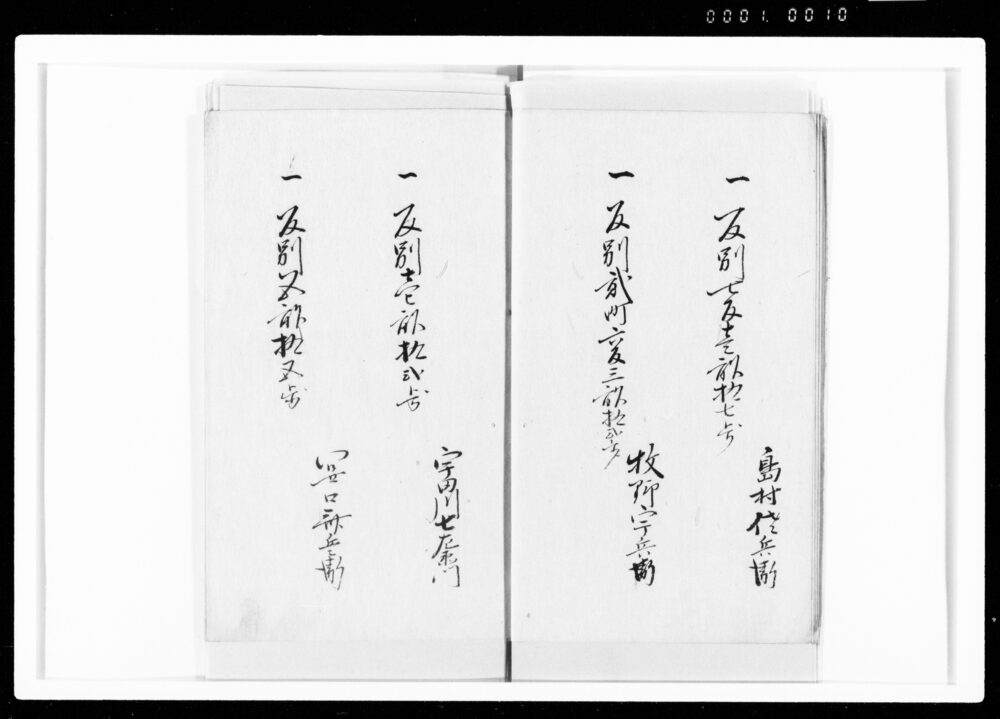 0001. 0010
一 反別七反壱畝拾七歩
島村 兵衛
一 反別弐町六反三畝拾弐歩
牧野宇兵衛
一 反別壱畝拾弐歩
宇田川七左衛門
一 反別五畝拾五歩
口 兵衛